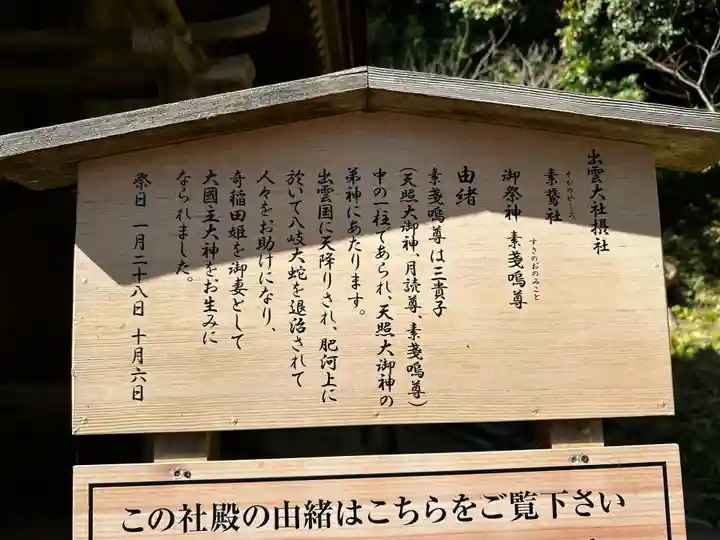 出雲大社摂社
素鵞社
そがのやしろ
御祭神 素戔嗚尊
すさのおのみこと
由緒
素戔嗚尊は三貴子
(天照大御神、月読尊、素戔嗚尊)
中の一柱であられ、天照大御神の
弟神にあたります。
出雲国に天降りされ、肥河上に
於いて八岐大蛇を退治されて
人々をお助けになり、
奇稲田姫を御妻として
大國主大神をお生みに
なられました。
祭日 一月二十八日 十月六日
この社殿の由緒はこちらをご覧下さい